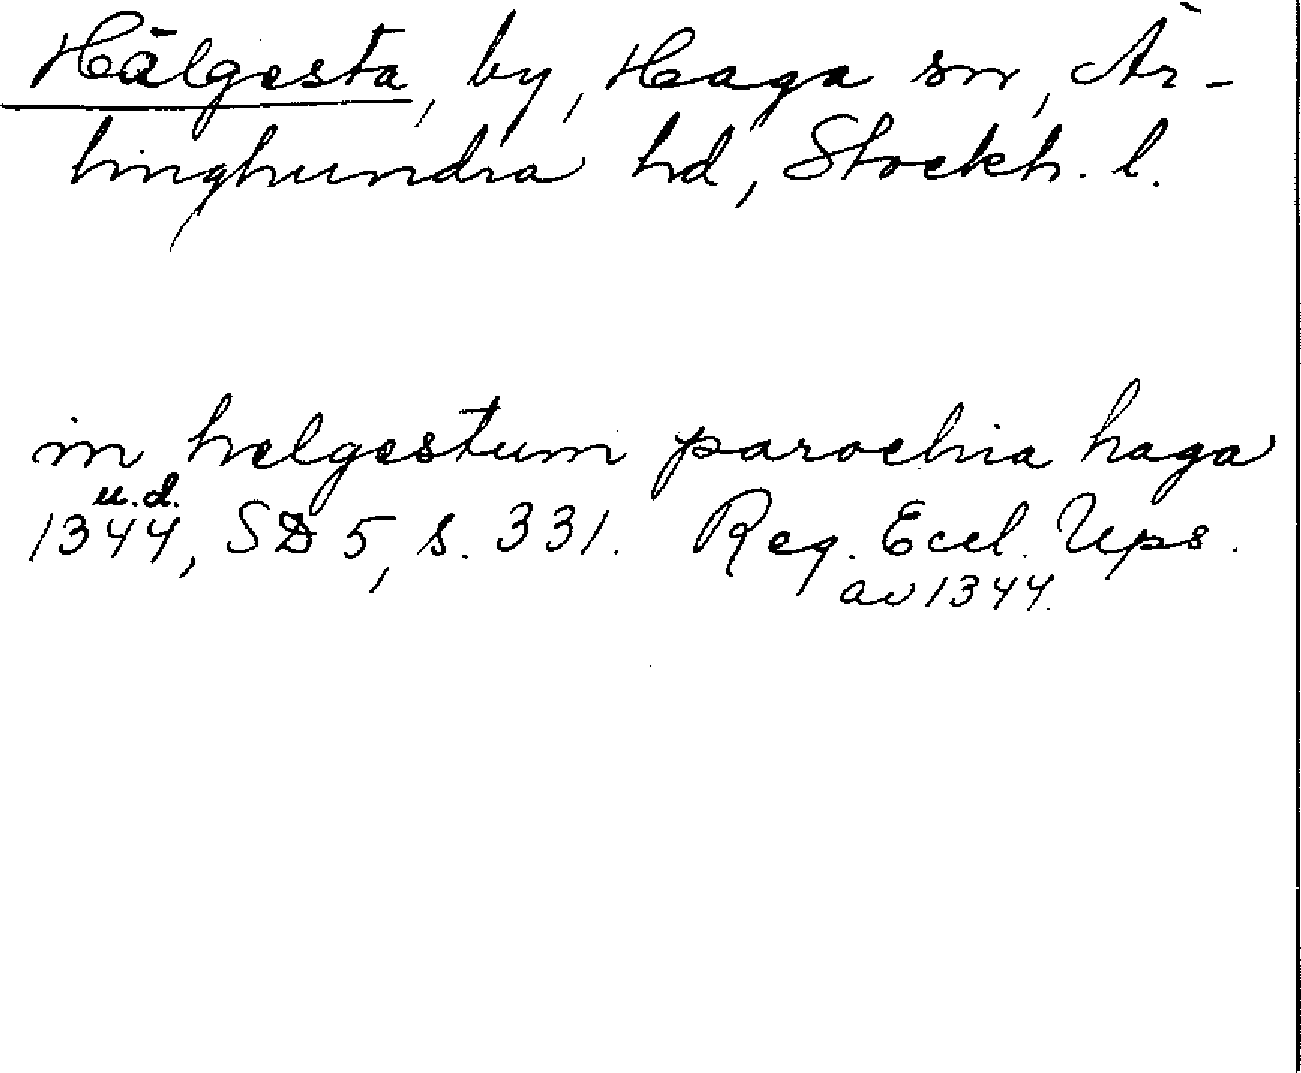 Hälgesta, by, Haga sn, Är-
linghundra hd, Stockh. l.
in helgestum parochia haga
u.d.
1344, SD 5, s. 331. Reg. Eccl. Ups.
av 1344.